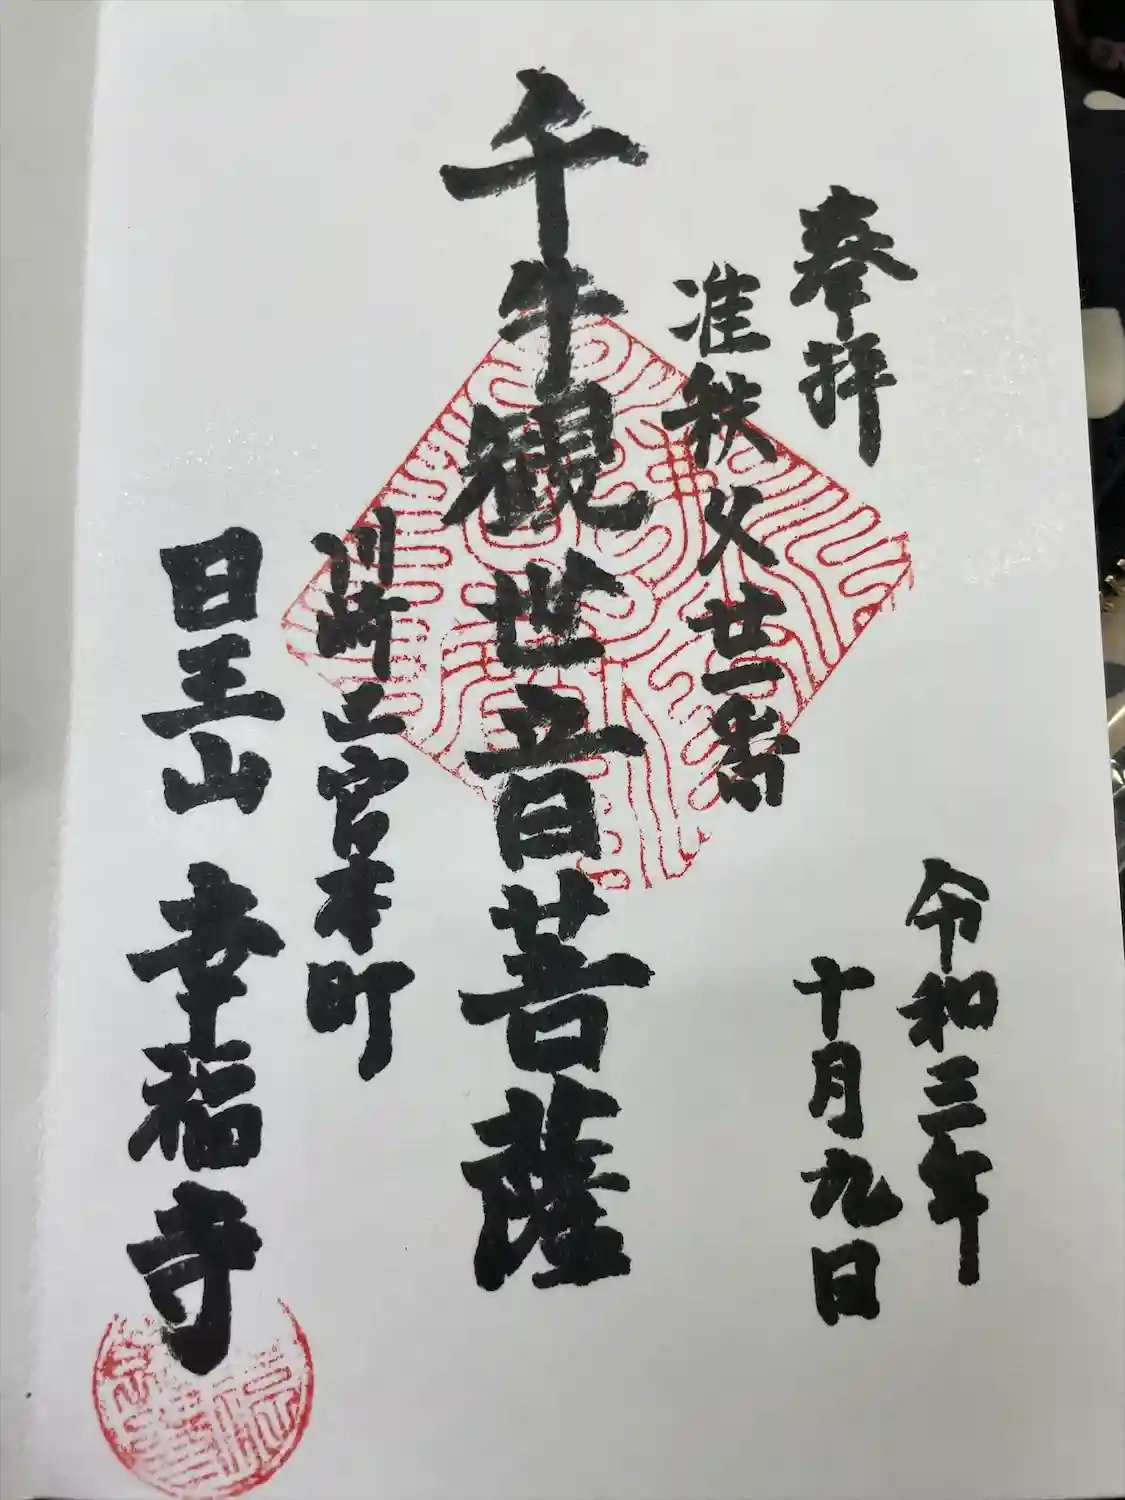 奉拝
准秩父廿一番
令和三年
十月九日
千手観世音菩薩
川崎区宮本町
日王山 幸福寺